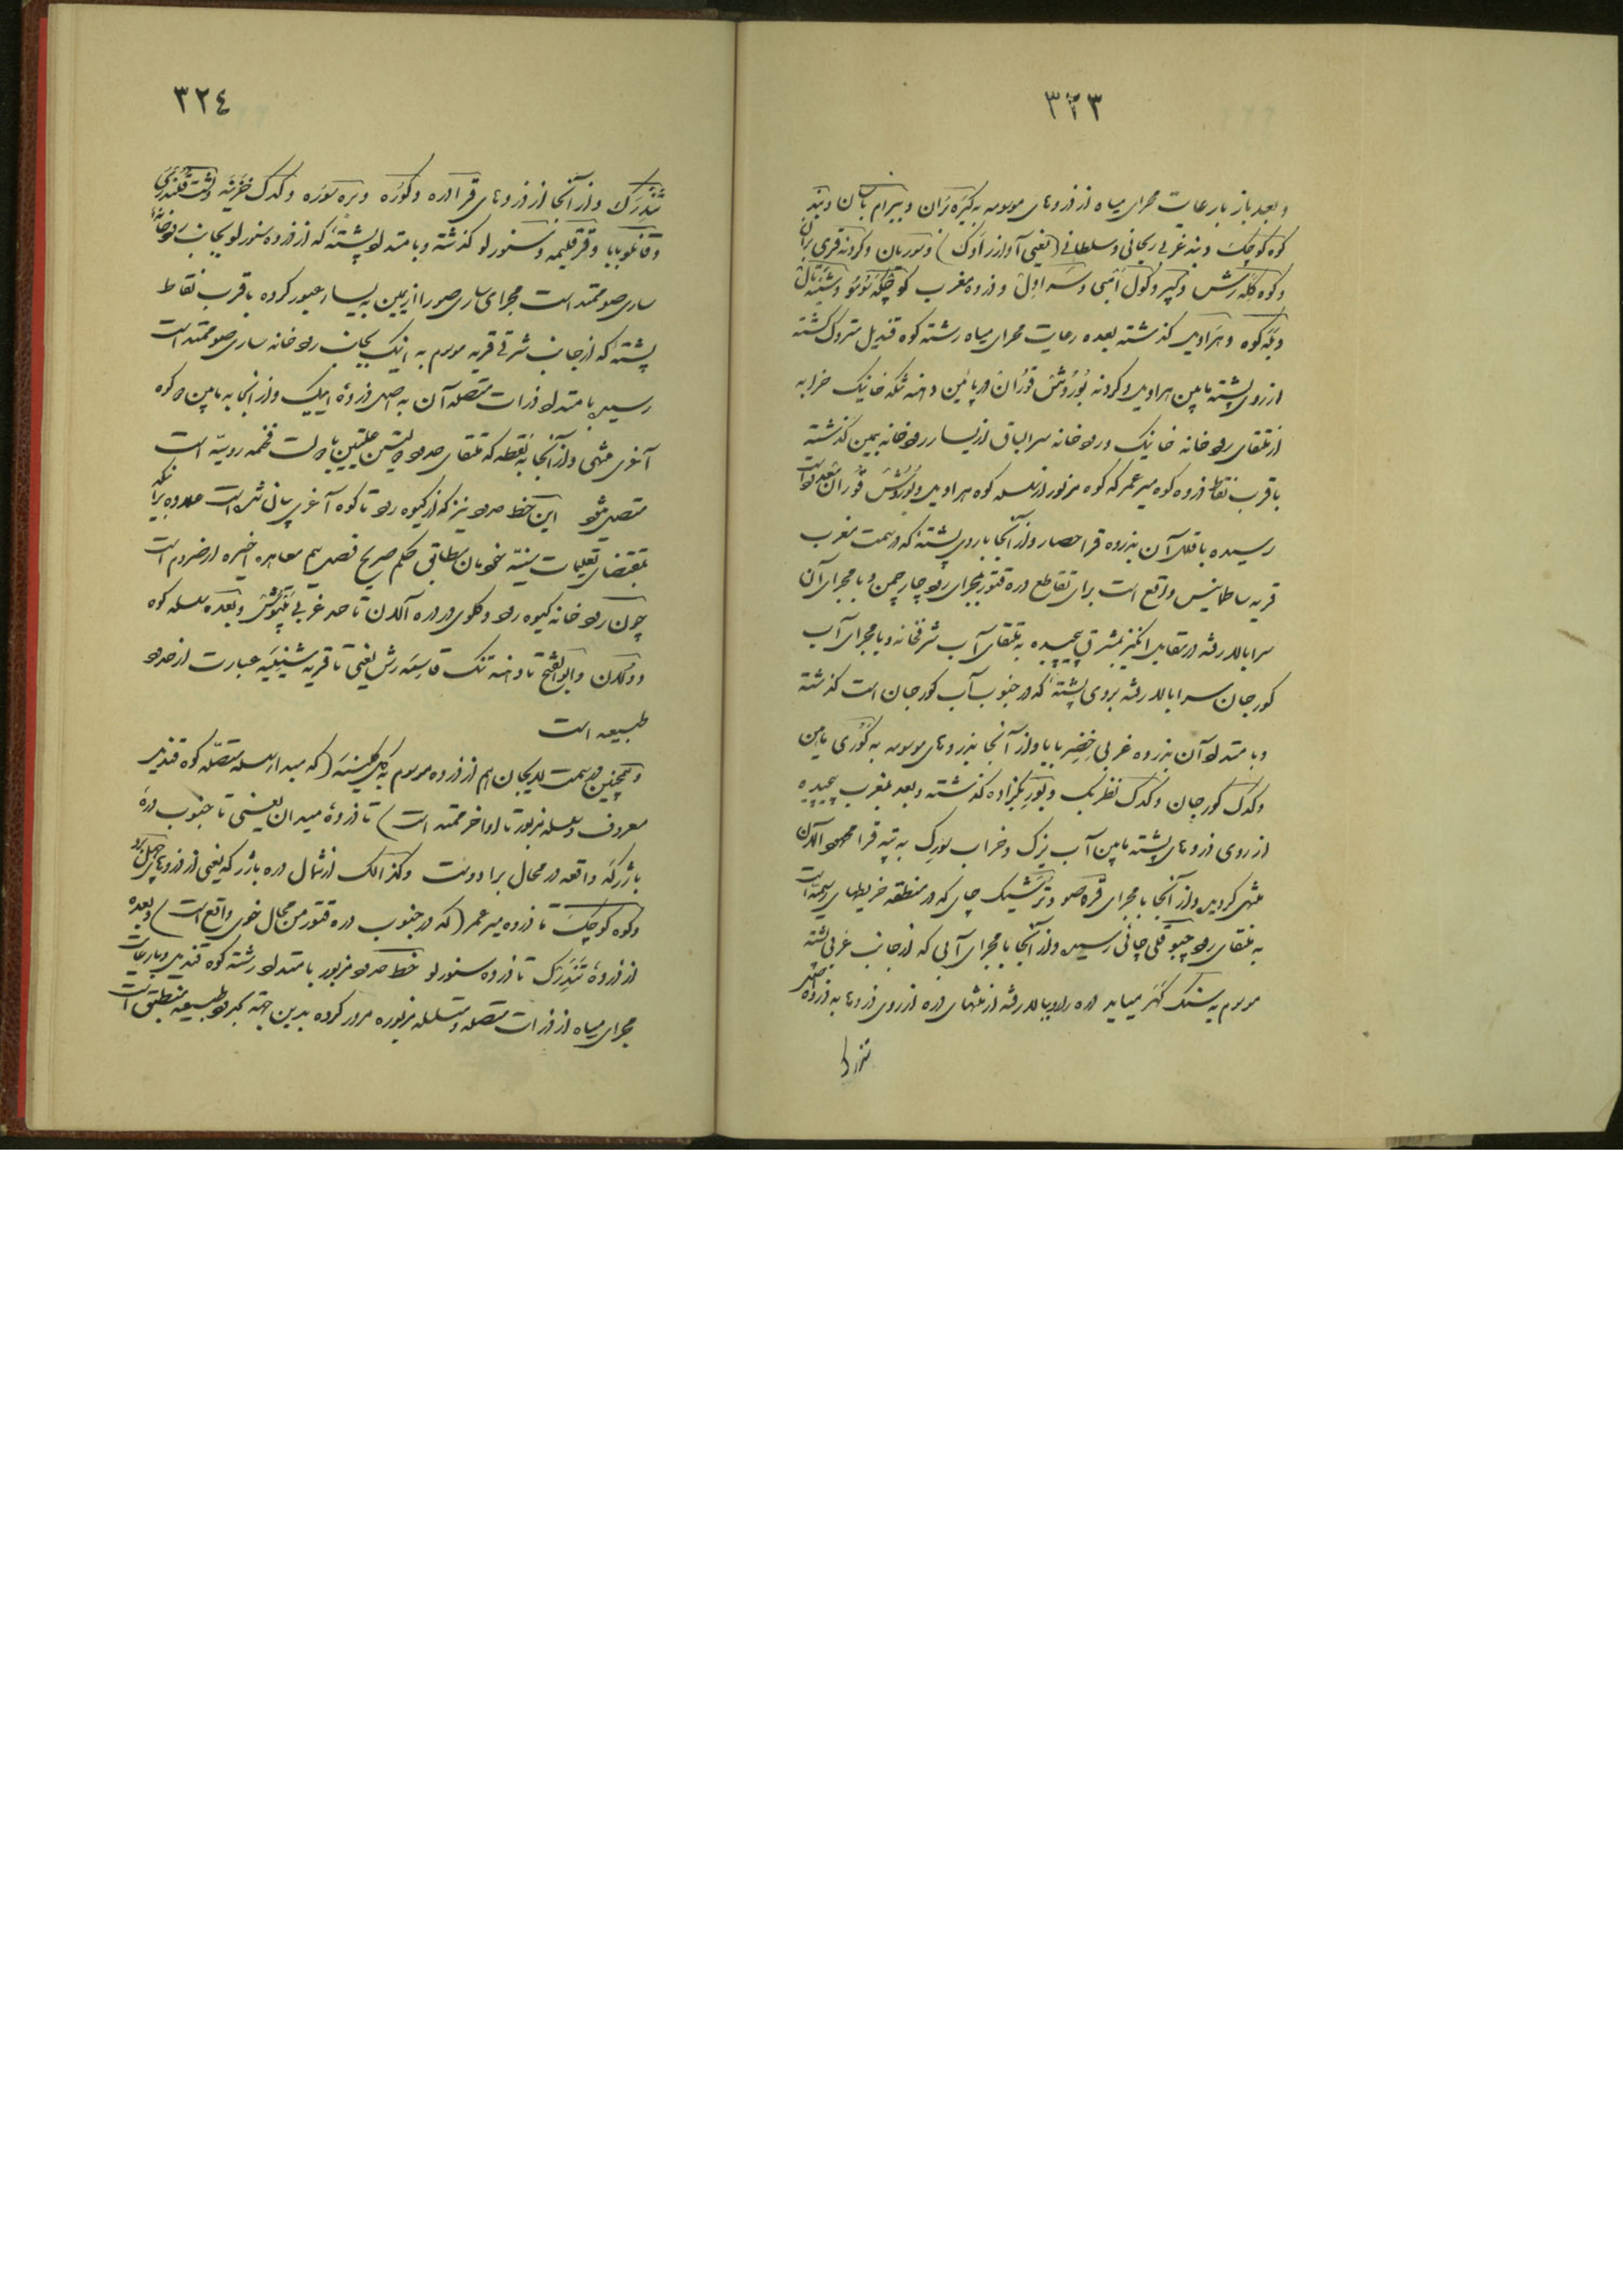 ٣٢٣
و بعد باز بارعایت مجرای میاه از ذروهای موسومه به کپره بران و بیرام بابان و بند
کوه کوچک و بند غربی ریحانی و سلطانی (یعنی آوازر اوک) و سوربان و کردنه قری بران
و کوه کله رش و کپر و کول امبی و سر اویل و ذروه مغرب کو
و بنه کوه و هراویل گذشته بعده رعایت مجرای میاه رشته کوه قندیل متروک گشته
از روی پشته مابین هراویل و کردنه بوروش قوران در پائین دهنه تنکه خانیک خرابه
از ملتقای رودخانه خانیک و رودخانه سرالباق از یسار رودخانه بیمین گذشته
با قرب نقاط ذروه کوه میر عمر که کوه مزبور از سلسله کوه هراویل و بوروش قوران معدود است
رسیده با قلل آن بذروه قراحصار و از آنجا با روی پشته که در سمت مغرب
قریه ساطمانیس واقع است برای تقاطع دره قتور بمجرای رود چارچمن و با مجرای آن
سرابالا رفته در مقابل انکیز بمشرق پیچیده به ملتقای آب شرفخانه و با مجرای آب
کورجان سرابالا رفته بروی پشته که در جنوب آب کورجان است گذشته
و با امتداد آن بذروه غربی خضر بابا و از آنجا بذروهای موسومه به کوری مابین
و کدک کورجان و کدک نظربک و بوربکزاده گذشته و بعد بمغرب پیچیده
از روی ذروهای پشته مابین آب نزک و خراب سورک به تپه قرا محمود آلان
منتهی گردیده و از آنجا با مجرای قره صو و ترشیک چای که در منطقه خریطهای رسمیه است
به ملتقای رود چبوقلی چائی رسیده و از آنجا با مجرای آبی که از جانب غربی پشته
موسوم به سنک کهر میاید دره را رو ببالا رفته از منتهای دره از روی ذروها به ذروه خضر
تندرک
٣٢٤
تندرک و از آنجا از ذروهای قرادره و کوره و بره سوره و کدک خزینه و دشت قلندری
و قانلو بابا و قزقلیمه و سنورلو گذشته و با امتداد پشته که از ذروه سنورلو بجانب رودخانه
ساری صو ممتد است مجرای ساری صو را از یمین به یسار عبور کرده با قرب نقاط
پشته که از جانب شرقی قریه موسوم به اینک بجانب رودخانه ساری صو ممتد است
رسیده با امتداد ذرات متصله آن به اصل ذروهٔ ایبیک و از آنجا به مابین دو کوه
آغری منتهی و از آنجا به نقطه که ملتقای حدود دولتین علیتین با دولت فخیمه روسیه است
متصل میشود این خط حدود نیز که از کیوه رود تا کوه آغری بیان شده است
بمقتضای تعلیمات سنیه خودمان مطابق حکم صریح فصل سیم معاهده اخیره ارضروم است
چون رودخانه کیوه رود و کلوی و دره آلان تا حد غربی بتوش و بعده سلسله کوه
دولان و ابوالفتح تا دهنه تنک قاسمه رش یعنی تا قریه شینیه عبارت از حدود
طبیعیه است
و همچنین در سمت لاریجان هم از ذروه موسوم به کل کلینه (که مبداء سلسله متصله کوه قندیل
معروف و سلسله مزبور تا اواخر ممتد است) تا ذروهٔ میدان یعنی تا جنوب درهٔ
بازرکه واقعه در محال برادوست و کذالک از شمال دره بازرکه یعنی از ذروهای
و کوه کوچک تا ذروه میر عمر (که در جنوب دره قتور من محال خوی واقع است) و بعده
از ذروهٔ تندرک تا ذروه سنورلو خط حدود مزبور با امتداد رشته کوه قندیل و با رعایت
مجرای میاه از ذرات متصله و متسلسله مزبوره مرور کرده بدین جهة بحدود طبیعیه منطبق است